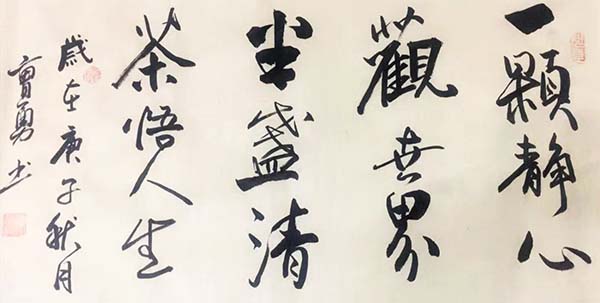 一顆静心
觀世界
半盏清
茶悟人生
歲在庚子秋月
曹勇书